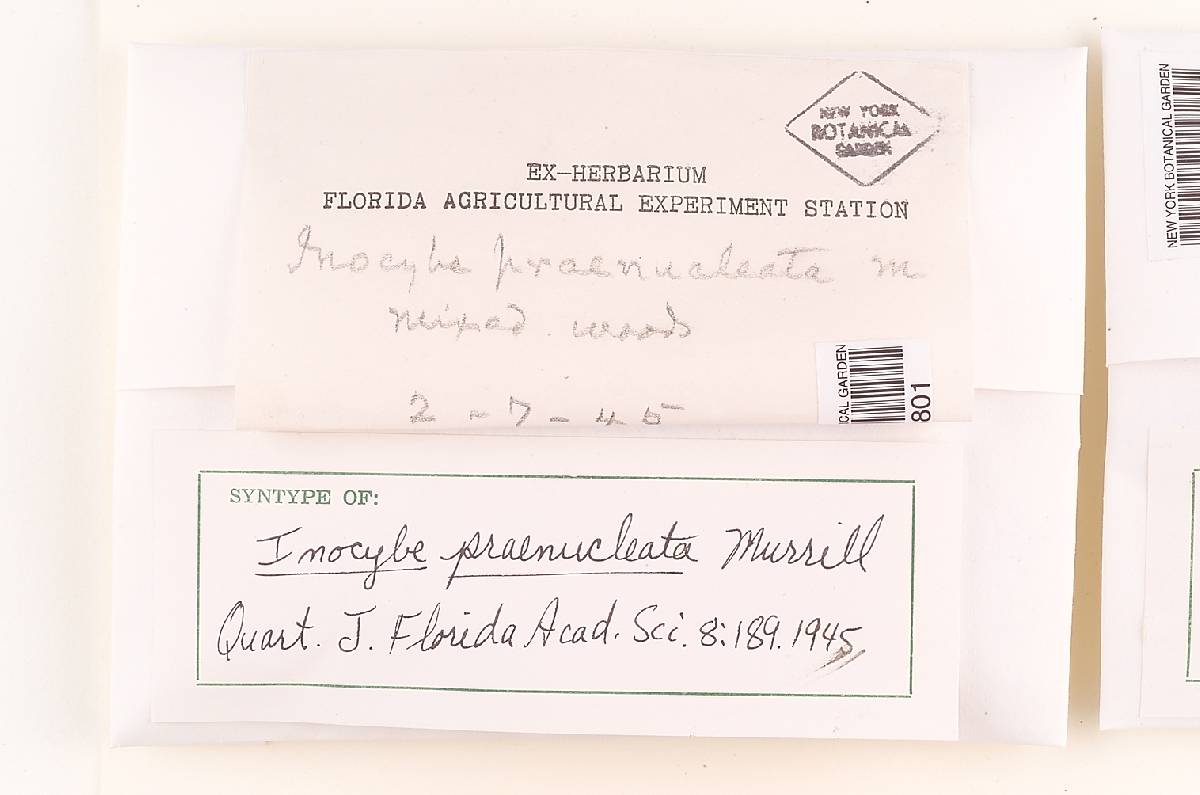 NEW YORK
BOTANICAL
GARDEN
EX-HERBARIUM
FLORIDA AGRICULTURAL EXPERIMENT STATION
Inocybe praenucleata M
mixed woods
2-7-45
CAL GARDEN
801
SYNTYPE OF:
Inocybe praenucleata Murrill
Quart. J. Florida Acad. Sci. 8:189. 1945
NEW YORK BOTANICAL GARDEN